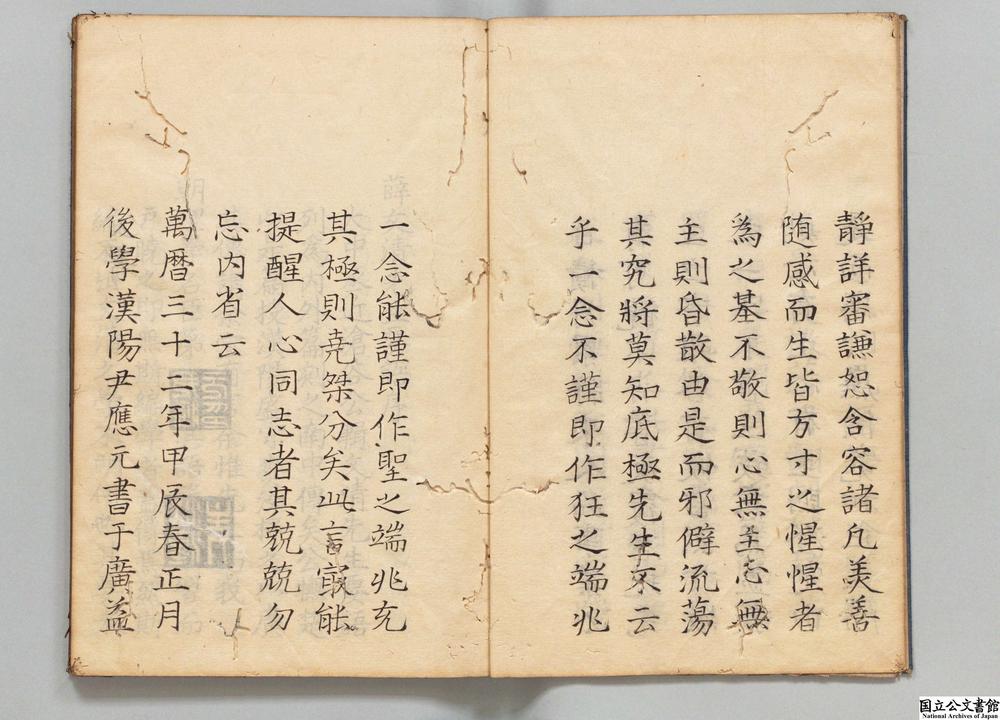 靜詳審謙恕含容諸凡美善
随感而生皆方寸之惺惺者
為之基不敬則心無主志無
主則昏散由是而邪僻流蕩
其究將莫知底極先生不云
乎一念不謹即作狂之端兆
一念能謹即作聖之端兆充
其極則堯桀分矣此言最能
提醒人心同志者其兢兢勿
忘内省云
萬曆三十二年甲辰春正月
後學漢陽尹應元書于廣益
国立公文書館
National Archives of Japan